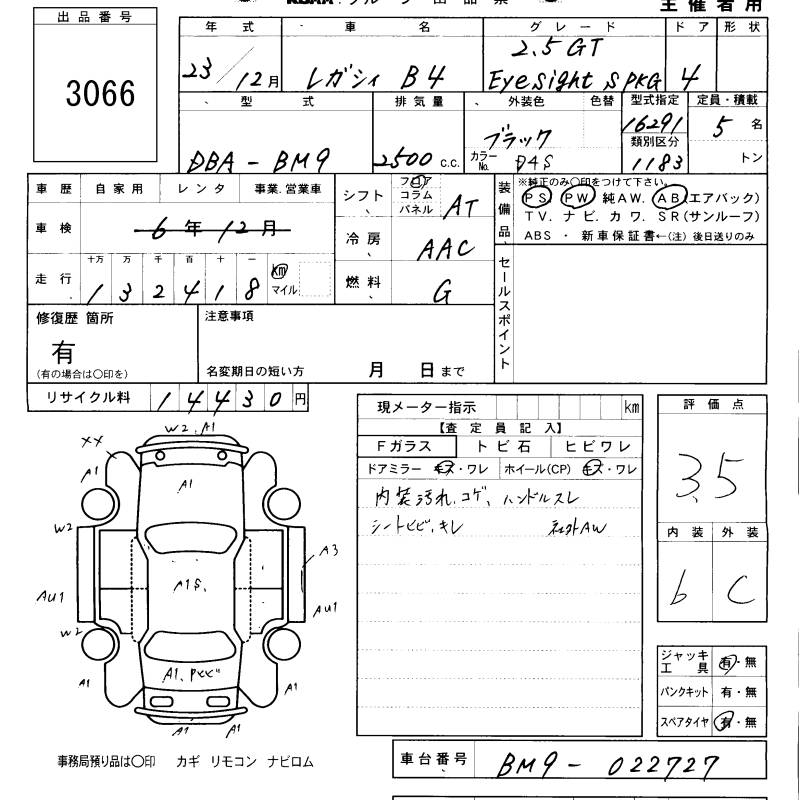 出品番号
3066
主催者用
年式 車名 グレード ドア 形状
23/12月 レガシィ B4 2.5GT
EyeSight S PKG 4
型式 排気量 外装色 色替 型式指定 定員・積載
DBA-BM9 2500 C.C. ブラック 16291 5名
類別区分
カラーNo. D4S 1183 トン
車歴 自家用 レンタ 事業.営業車
車検 6年12月
走行 十万 万 千 百 十 一
132418 km マイル
シフト フロア コラム パネル AT
冷房 AAC
燃料 G
装備品
※純正のみ○印をつけて下さい。
PS PW 純AW. AB(エアバック)
TV. ナビ. カワ. SR(サンルーフ)
ABS ・ 新車保証書←(注) 後日送りのみ
セールスポイント
修復歴 箇所
有
(有の場合は○印を)
注意事項
名変期日の短い方 月 日まで
リサイクル料 14430円
現メーター指示 km
【査定員記入】
Fガラス トビ石 ヒビワレ
ドアミラー キズ・ワレ ホイール(CP) キズ・ワレ
内装汚れ.コゲ、ハンドルスレ
シートヒビ.キレ 社外AW
評価点
3.5
内装 外装
b C
ジャッキ工具 有・無
パンクキット 有・無
スペアタイヤ 有・無
W2.A1
XX
A1
A1
W2
A3
A1S.
AU1
AU1
W2
A1.Pヒビ
A1
A1
A1
A1
事務局預り品は○印 カギ リモコン ナビロム
車台番号 BM9-022727